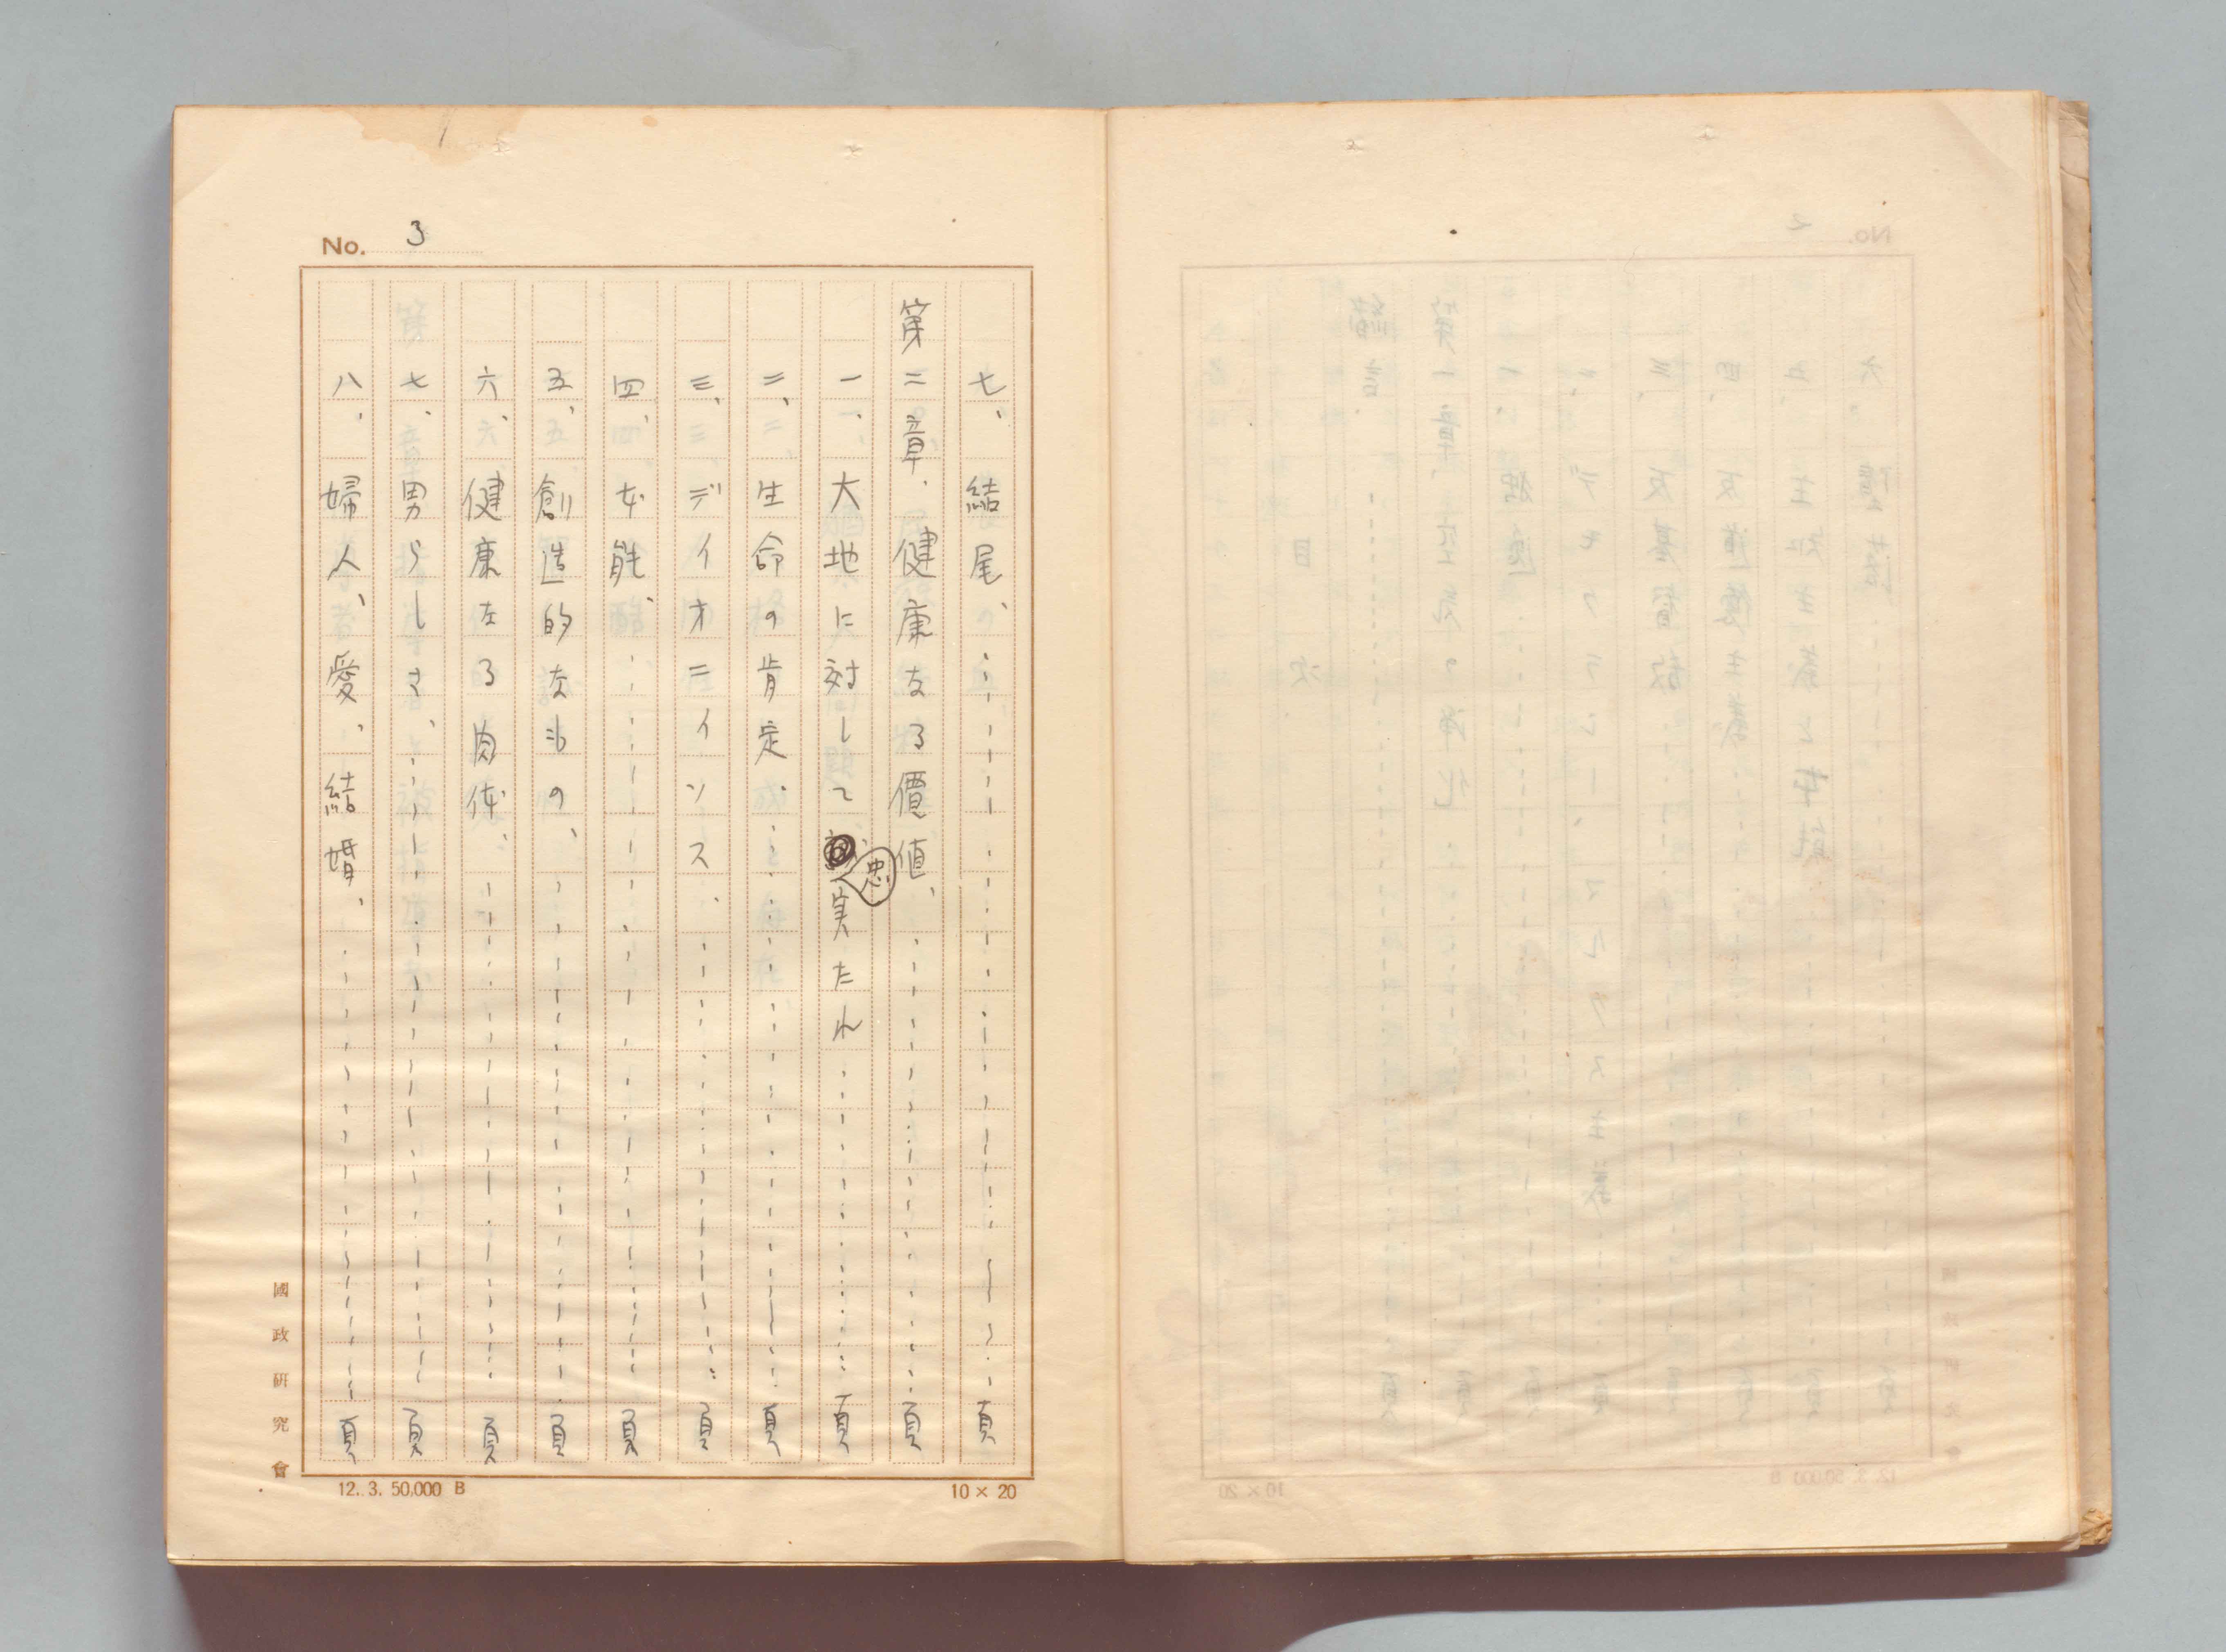 No. 3
七、結尾、……………………頁
第二章、健康なる價値、……………………頁
一、大地に対して忠実たれ……………………頁
二、生命の肯定、……………………頁
三、デイオニイソス、……………………頁
四、本能、……………………頁
五、創造的なもの、……………………頁
六、健康なる肉体、……………………頁
七、男らしさ、……………………頁
八、婦人、愛、結婚、……………………頁
國政研究會
12. 3. 50,000 B
10×20